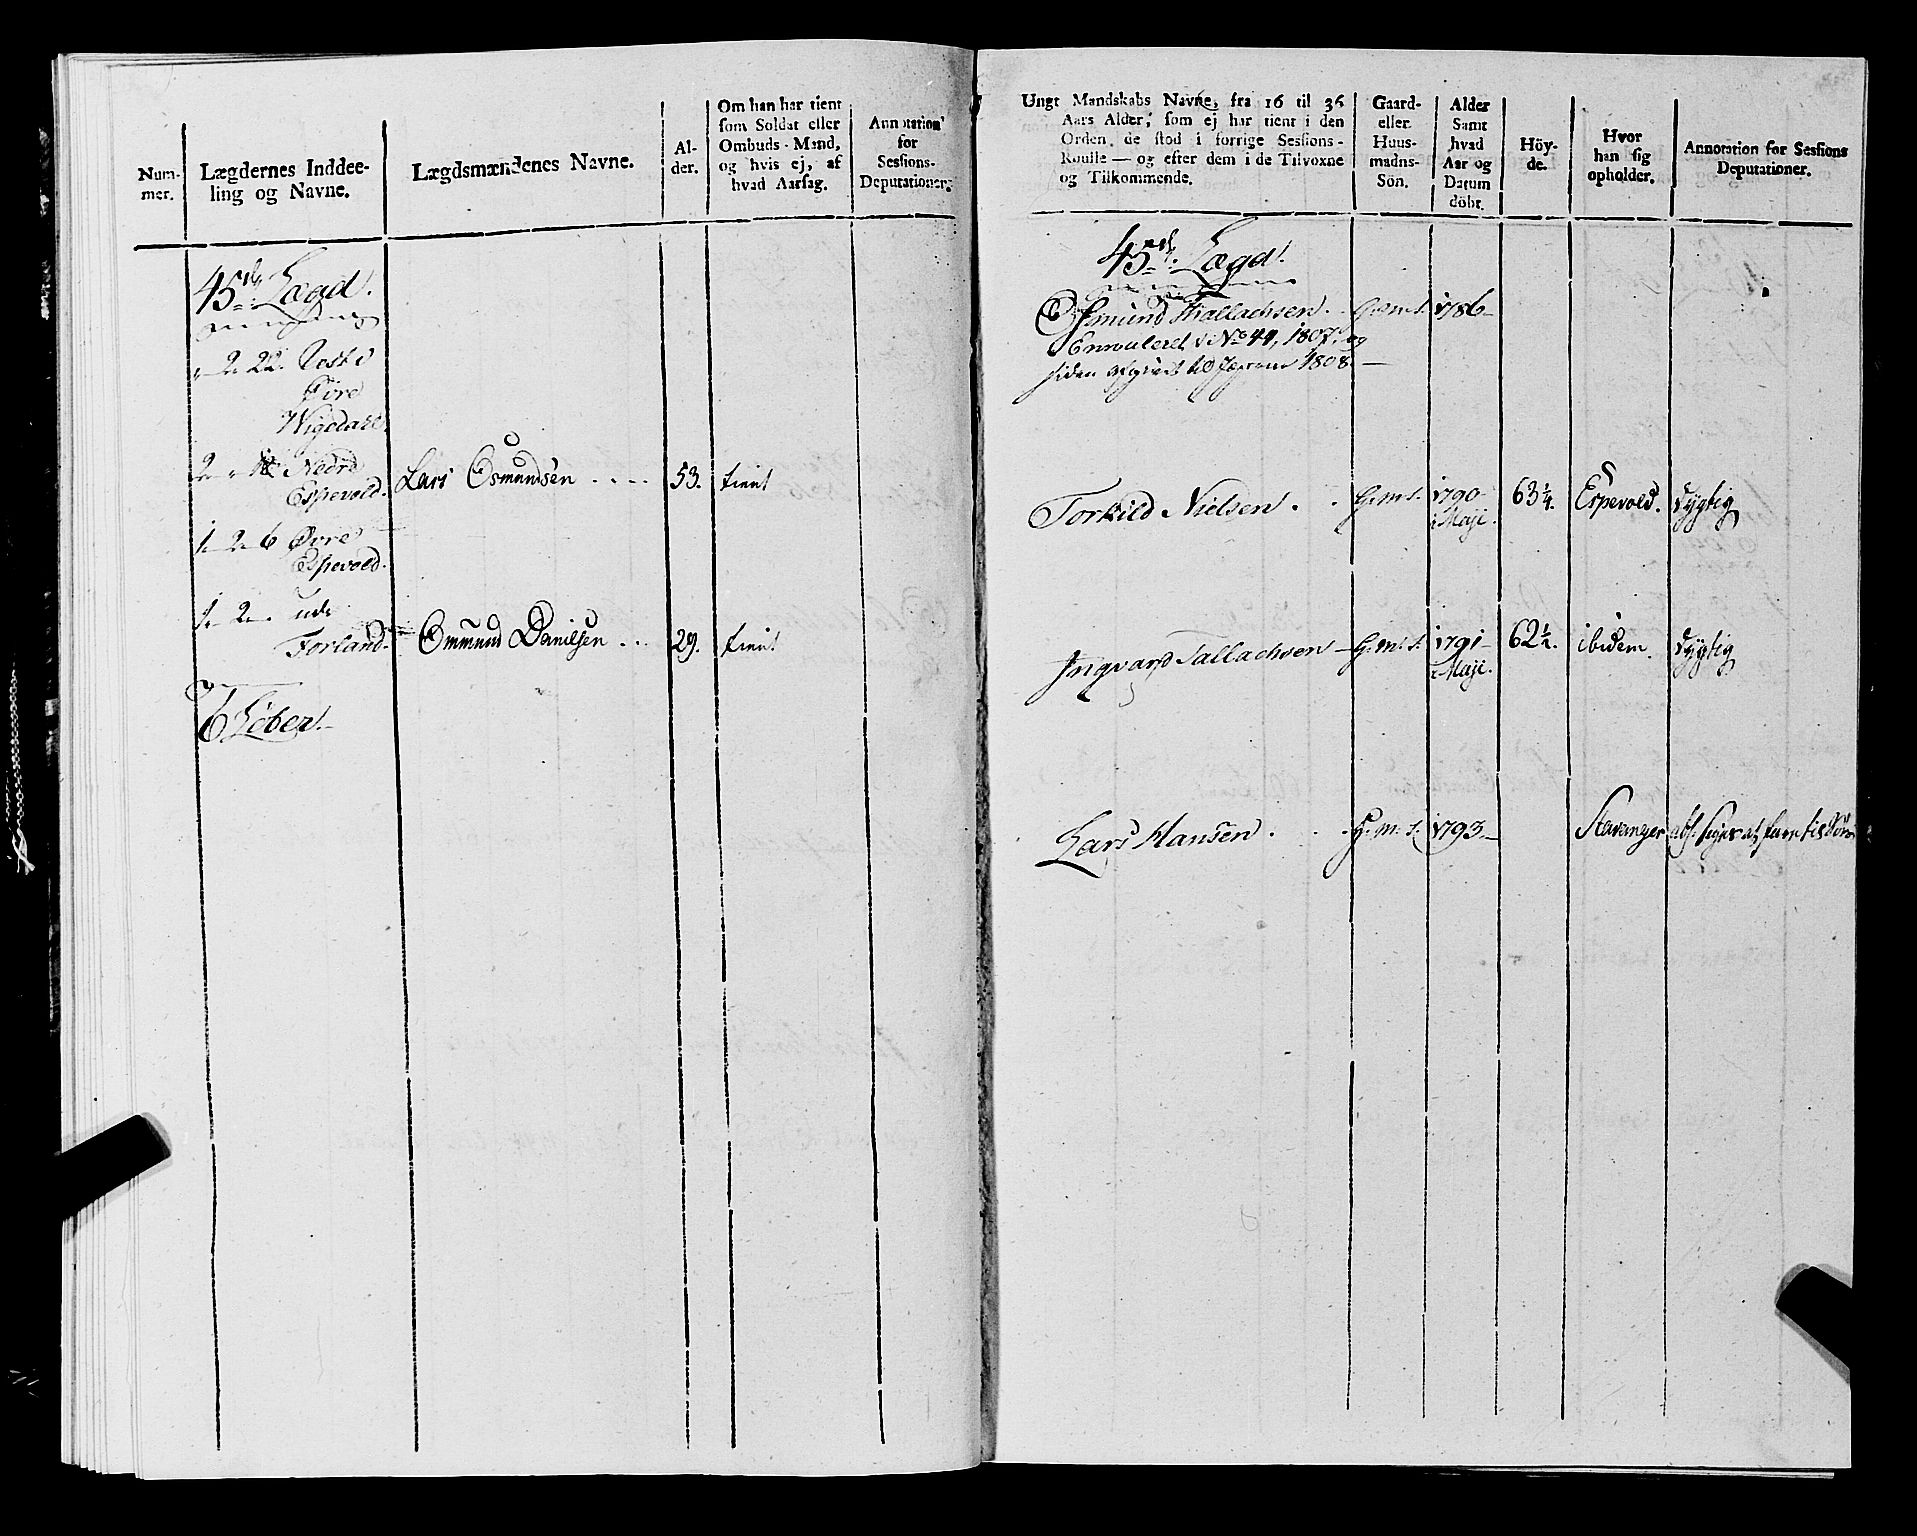 Num-
mer.
Lægdernes Inddee-
ling og Navne.
Lægdsmændenes Navne.
Al-
der.
Om han har tient
som Soldat eller
Ombuds-Mand,
og hvis ej, af
hvad Aarsag.
Annotation
for
Sessions-
Deputationer.
45de Lægd.
2 22. Vest
Øvre
Wigedahl
2 Nedre
Espevold.
Lars Osmundsen 53. tient
1 2 6 Øvre
Espevold.
1 2 ude
Forland. Ommund Danielsen 29. tient
6 Løber.
Ungt Mandskabs Navne, fra 16 til 36
Aars Alder, som ej har tient i den
Orden, de stod i forrige Sessions-
Roulle — og efter dem i de Tilvoxne
og Tilkommende.
Gaard-
eller
Huus-
mands-
Sön.
Alder
Samt
hvad
Aar og
Datum
döbt.
Höy-
de.
Hvor
han sig
opholder.
Annotation for Sessions
Deputationer.
45de Lægd.
Osmund Thallachsen. G.m.s. 1786
Enrouleret No 44, 1807, og
siden afgivet til 1808.
Torkild Nielsen. G.m.s. 1790 63 1/4. Espevold. dygtig
Maji.
Ingvard Tallachsen G.m.s. 1791 62 1/2. ibidem. dygtig
Maji.
Lars Hansen H.m.s. 1793 Stavanger abs. siges at fare til Søes